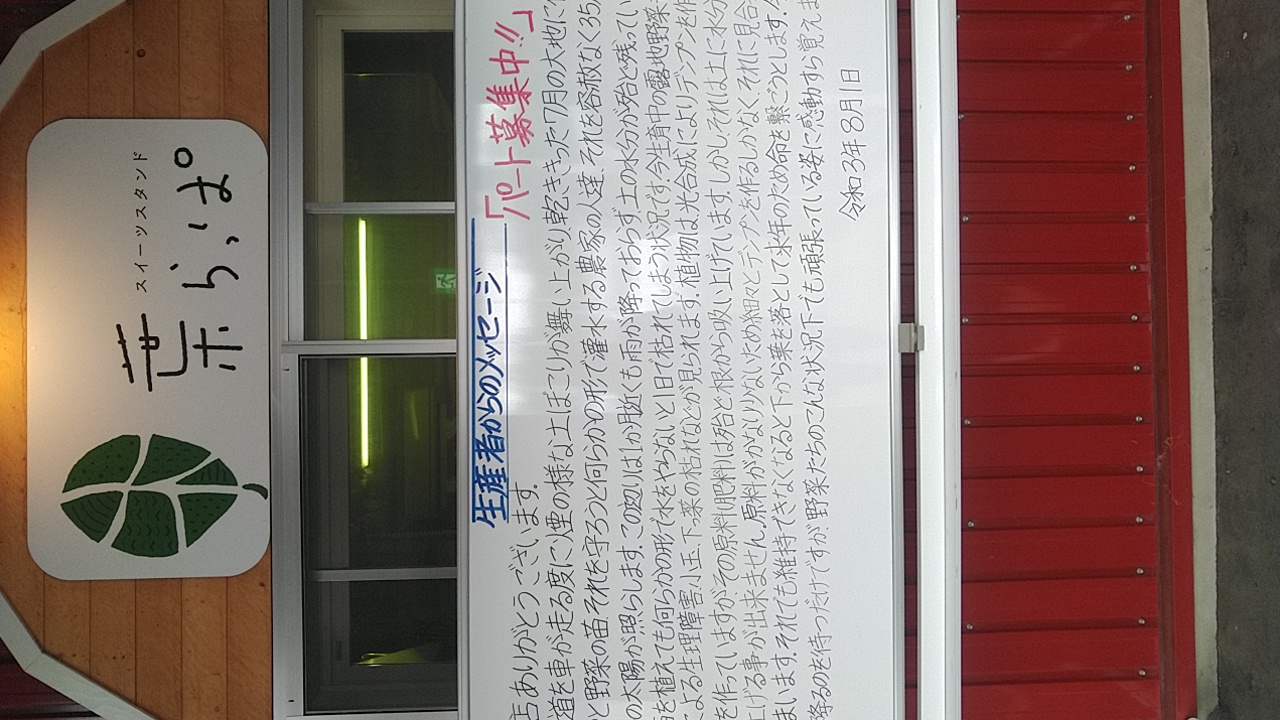 スイーツスタンド
葉らっぱ
生産者からのメッセージ
「パート募集中!!」
店ありがとうございます。
道を車が走る度に煙の様な土ぼこりが舞い上がり、乾ききった7月の大地に
と野菜の苗それを守ろうと何らかの形で灌水する農家の人達、それを容赦なく35
の太陽が照らします。この辺りは1か月近くも雨が降っておらず、土の水分が殆ど残ってい
を植えても何らかの形で水をやらないと1日で枯れてしまう状況です。今生育中の露地野菜
による生理障害小玉、下っ葉の枯れなどが見られます。植物は、光合成によりデンプンを作
を作っていますが、その原料(肥料)は殆ど根から吸い上げています。しかしそれは土に水分
上げる事が出来ません。原料がかなり少ないため細々とデンプンを作るしかなく、それに見合
まいます。それでも維持できなくなると下から葉を落として来年のため命を繋ごうとします。
降るのを待つだけですが、野菜たちのこんな状況下でも頑張っている姿に感動すら覚えま
令和3年8月1日